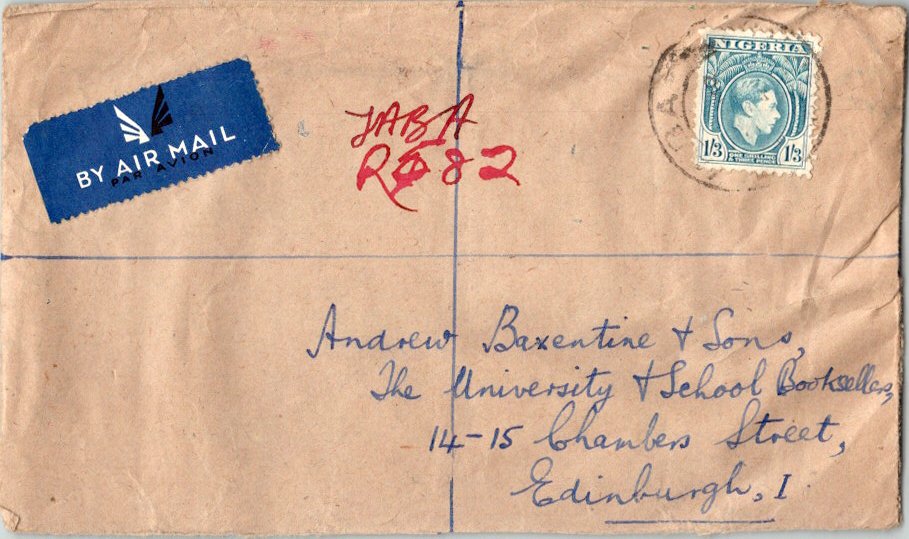 BY AIR MAIL
PAR AVION
JABA
R 682
NIGERIA
1/3 ONE SHILLING & THREE PENCE 1/3
Andrew Baxentine & Sons,
The University & School Booksellers,
14-15 Chambers Street,
Edinburgh, 1.